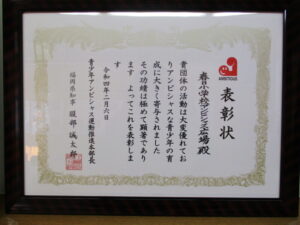 AMBITIOUS
表彰状
春日小学校アンビシャス広場 殿
貴団体の活動は大変優れてお
りアンビシャスな青少年の育
成に大きく寄与されました
その功績は極めて顕著であり
ます よってこれを表彰しま
す
令和四年二月六日
青少年アンビシャス運動推進本部長
福岡県知事 服部 誠太郎